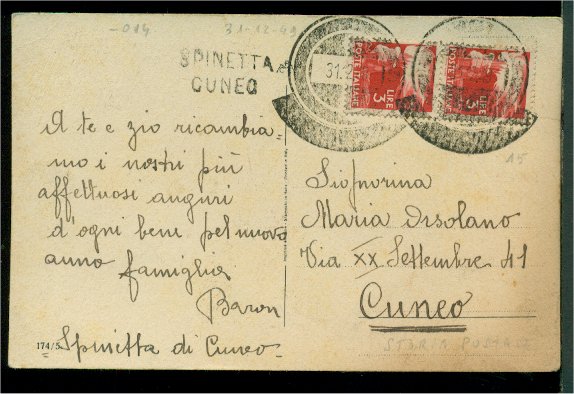 -014 31-12-49
SPINETTA
CUNEO
31.
POSTE ITALIANE
LIRE 3
POSTE ITALIANE
LIRE 3
A te e zio ricambia
mo i nostri più
affettuosi auguri
d'ogni bene pel nuovo
anno famiglia
Baron
Spinetta di Cuneo-
174/5
15
Signorina
Maria Orsolano
Via XX Settembre 41
Cuneo
STORIA POSTALE